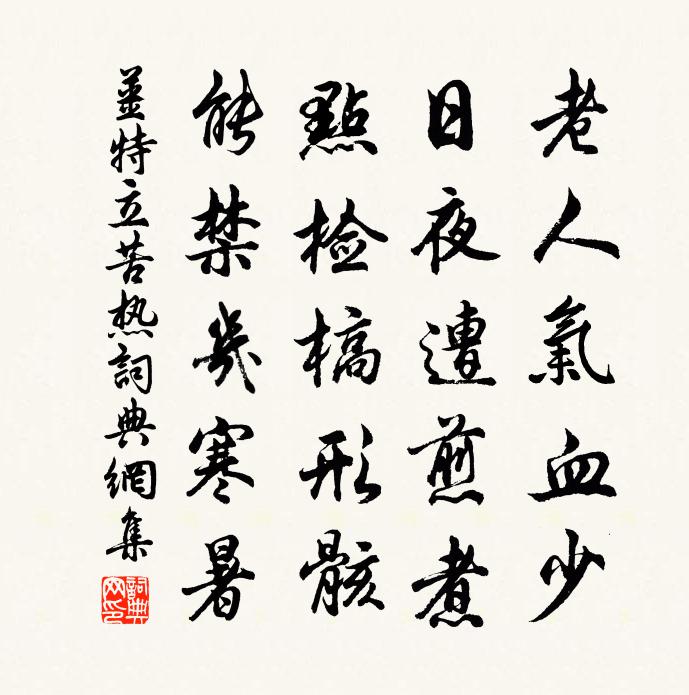 老人氣血少
日夜遭煎煮
點檢槁形骸
能禁幾寒暑
姜特立苦热詞典網集
詞典
网印